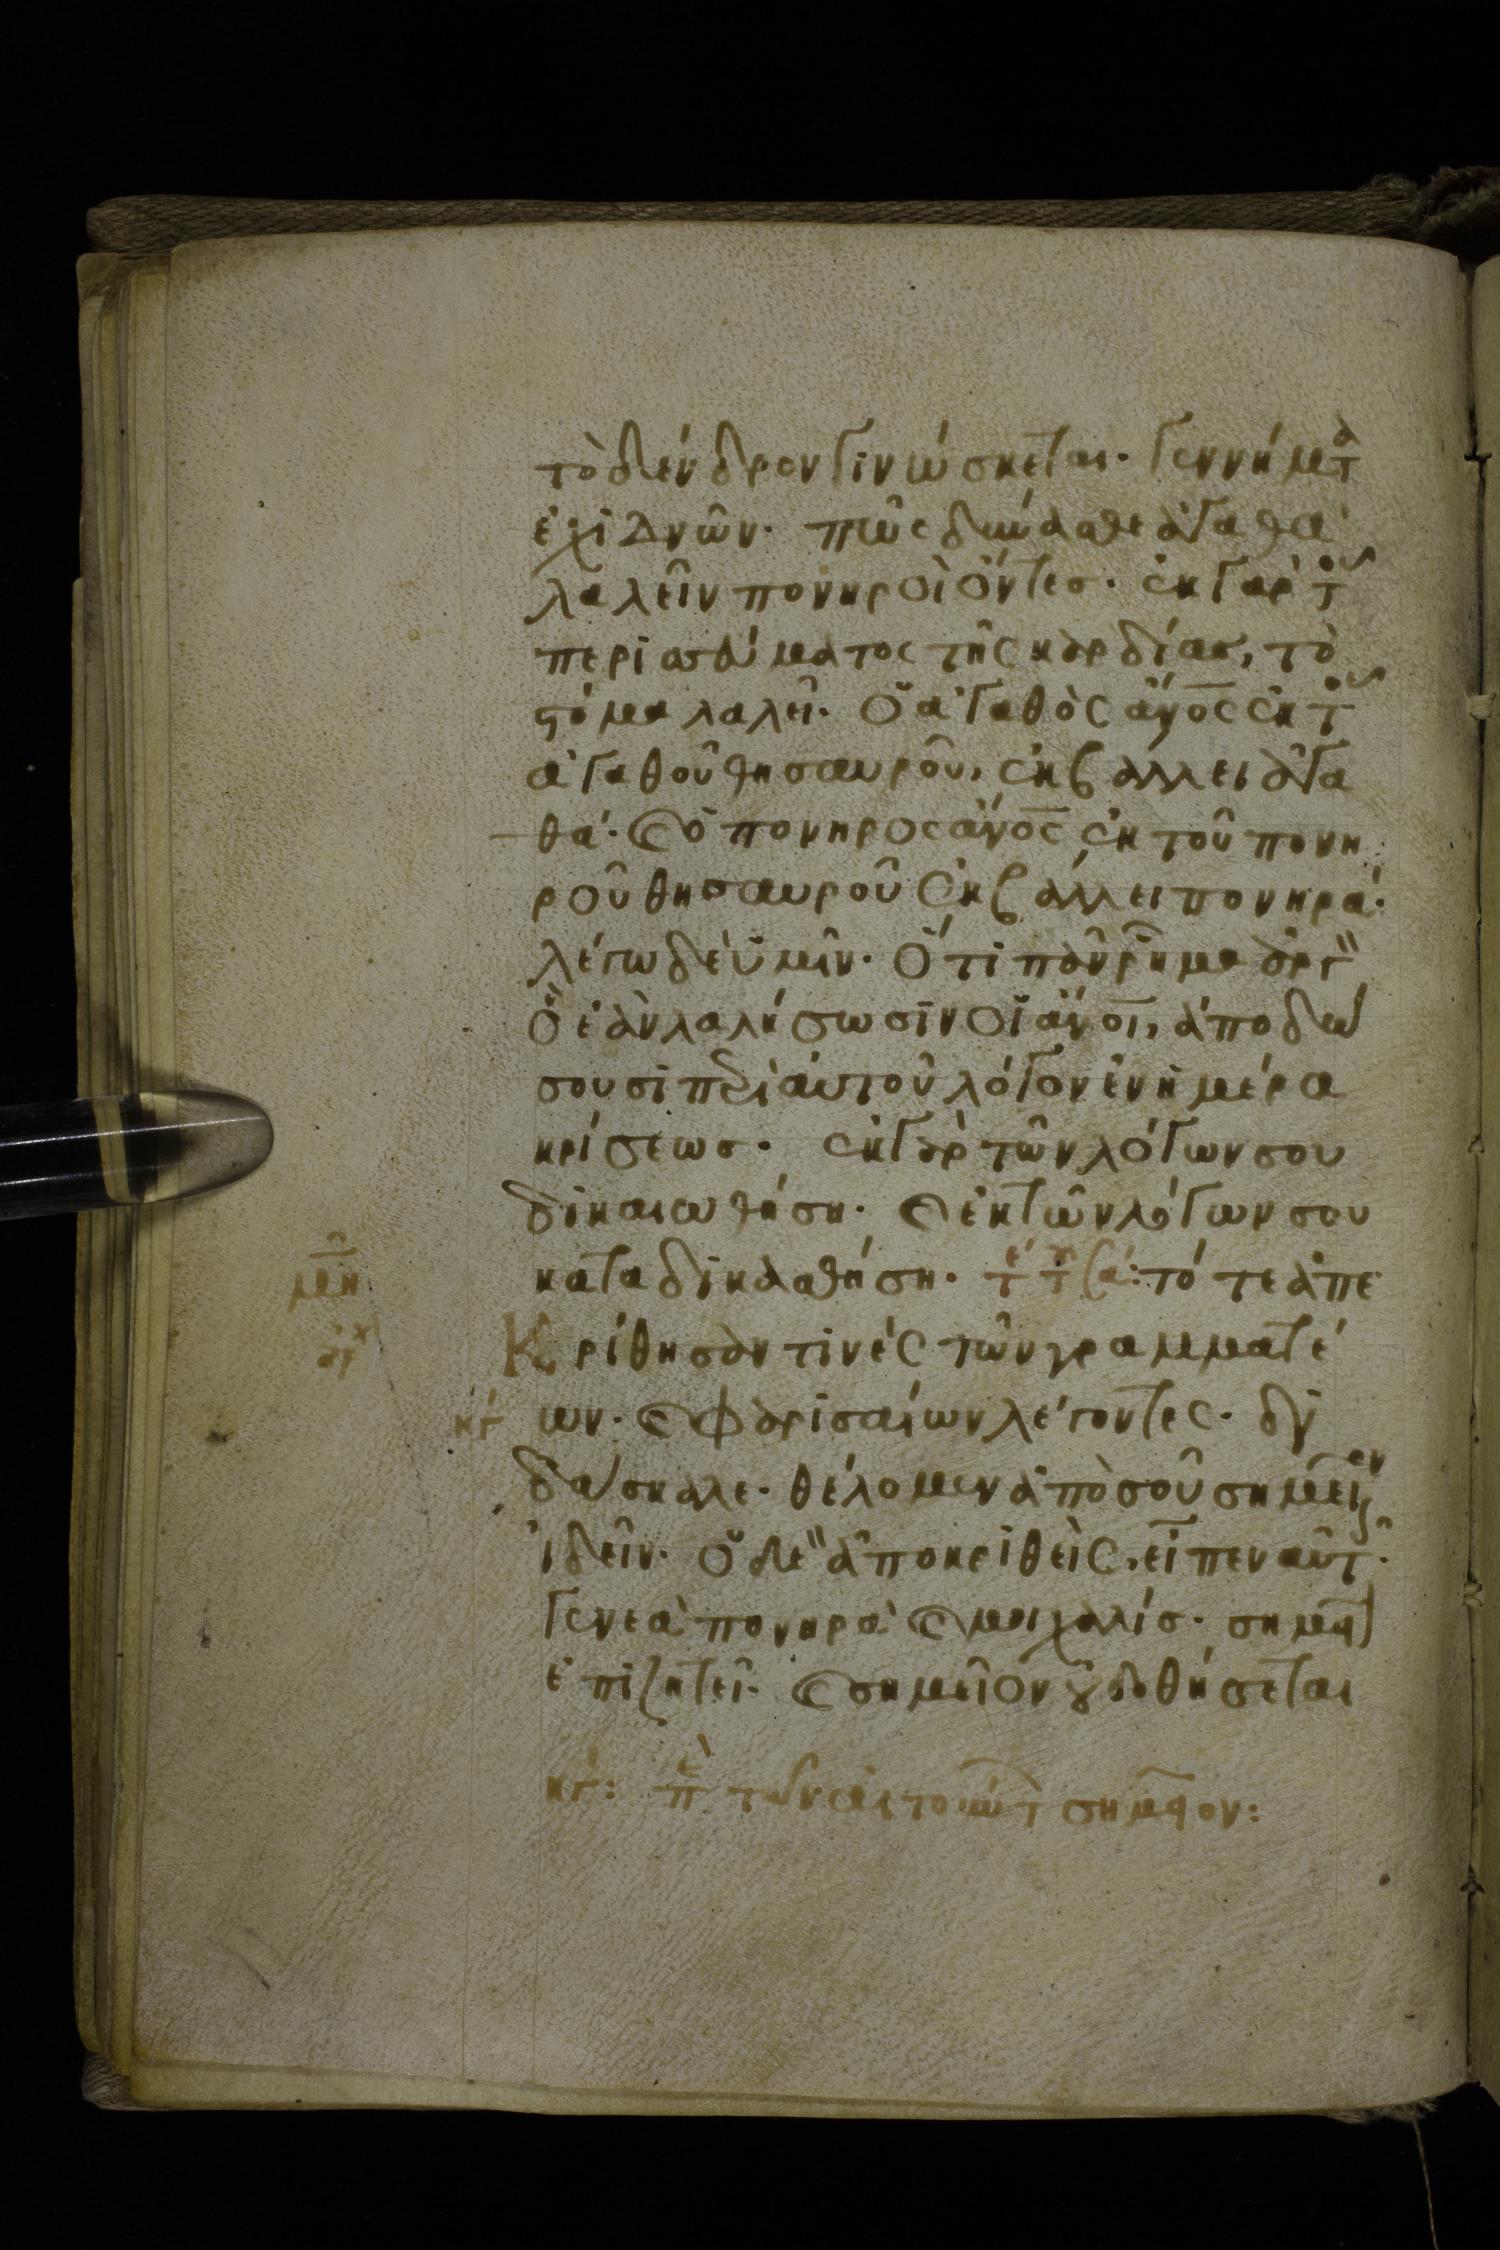 τὸ δένδρον γινώσκεται· γεννήματ
ἐχιδνῶν· πῶς δύνασθε ἀγαθὰ
λαλεῖν πονηροὶ ὄντες· ἐκ γὰρ τοῦ
περισσεύματος τῆς καρδίας, τὸ
στόμα λαλεῖ· ὁ ἀγαθὸς ἄνος ἐκ τοῦ
ἀγαθοῦ θησαυροῦ, ἐκβάλλει ἀγα
θά· καὶ ὁ πονηρὸς ἄνος ἐκ τοῦ πονη
ροῦ θησαυροῦ ἐκβάλλει πονηρά·
λέγω δὲ ὑμῖν· ὅτι πᾶν ῥῆμα ἀργ
ὃ ἐὰν λαλήσωσιν οἱ ἄνοι, ἀποδώ
σουσι περὶ αὐτοῦ λόγον ἐν ἡμέρα
κρίσεως· ἐκ γὰρ τῶν λόγων σου
δικαιωθήση· καὶ ἐκ τῶν λόγων σου
καταδικασθήση· τὸ τε ἀπε
Κρίθησάν τινὲς τῶν γραμματέ
κγ ων· καὶ φαρισαίων λέγοντες· δι
δάσκαλε· θέλομεν ἀπὸ σοῦ σημεῖον
ἰδεῖν· ὁ δὲ ἀποκριθεὶς, εἶπεν αὐτ·
γενεὰ πονηρὰ καὶ μοιχαλίς· σημεῖον
ἐπιζητεῖ· καὶ σημεῖον οὐ δοθήσεται
κγ: πε τῶν αἰτούντ σημεῖον: